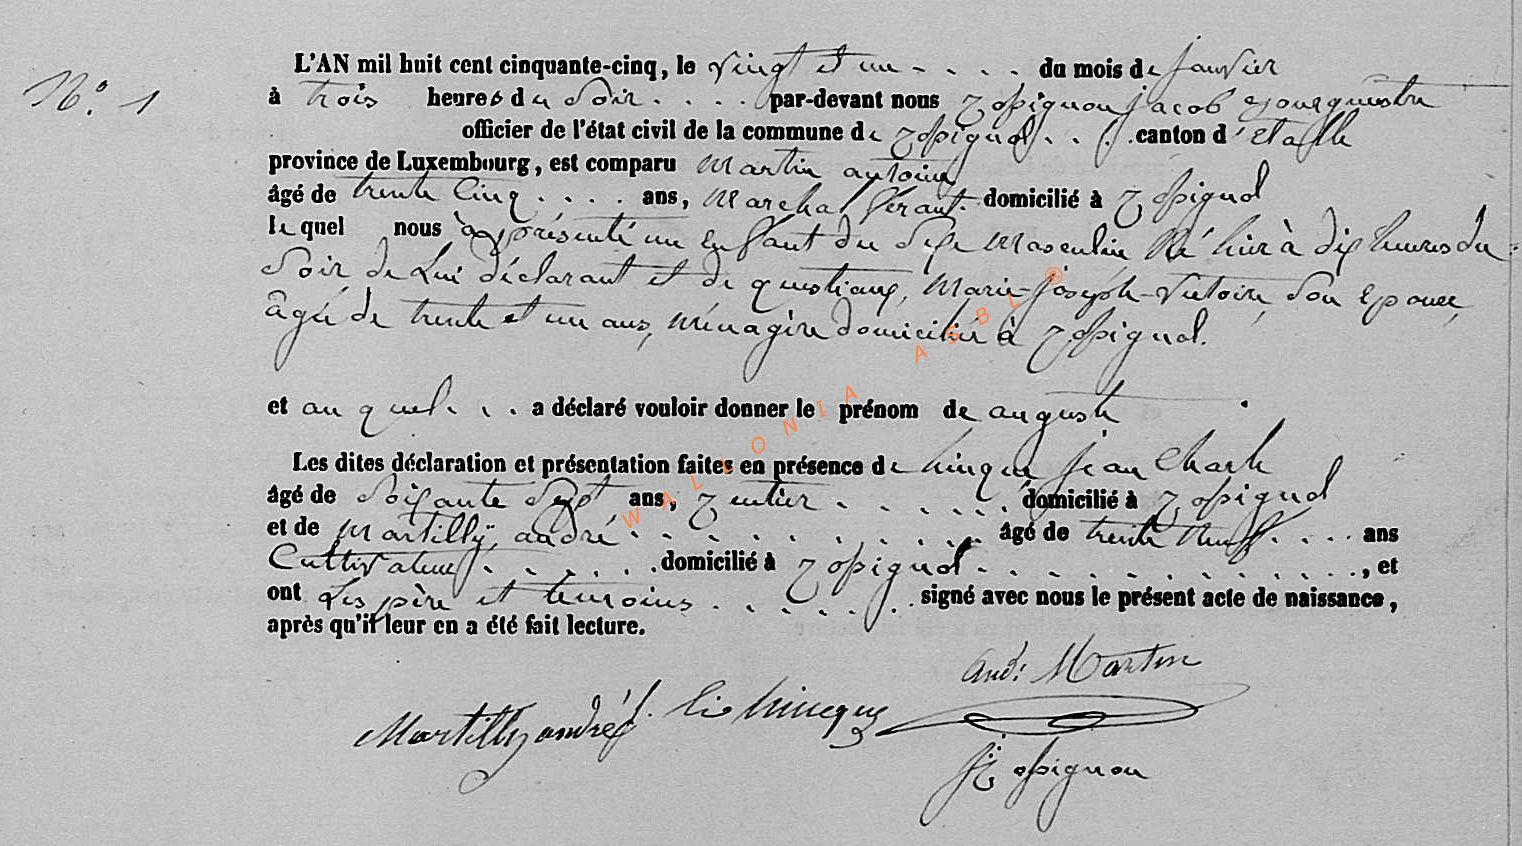 N.° 1
L'AN mil huit cent cinquante-cinq, le vingt et un - . . . du mois de janvier
à trois heures du soir . . . . par-devant nous Rossignon jacob Bourguestre
officier de l'état civil de la commune de Rossignol . . . canton d'étalle
province de Luxembourg, est comparu Martin antoine
âgé de trente cinq . . . . ans, Marchal férant. domicilié à Rossignol
lequel nous à présenté un enfant du sexe masculin Né hier à dix heures du
soir, de Lui déclarant et de questiaux, Marie-Joseph-Victoire, son épouse,
âgée de trente et un ans, ménagère domiciliée à Rossignol.
et auquel . . . a déclaré vouloir donner le prénom de auguste
Les dites déclaration et présentation faites en présence de hinque jean Charle
âgé de soixante sept ans, Rentier . . . . . . domicilié à Rossignol
et de Martilly, andré . . . . . . . . . . . . âgé de trente neuf . . . . ans
Cultivateur . . . . . . . domicilié à Rossignol . . . . . . . . . . . . . . , et
ont Les père et temoins . . . . . . . signé avec nous le présent acte de naissance,
après qu'il leur en a été fait lecture.
Martin
Martilly andré hincque
J Rossignon
WALLONIA ASBL ©